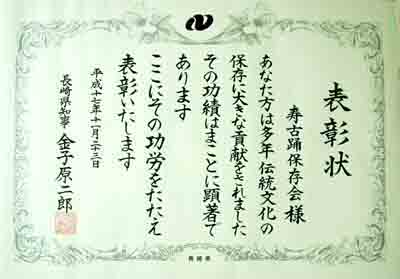 表彰状
寿古踊保存会 様
あなた方は多年伝統文化の
保存に大きな貢献をされました
その功績はまことに顕著で
あります
ここにその功労をたたえ
表彰いたします
平成十七年十一月二十三日
長崎県知事 金子原二郎
長崎県